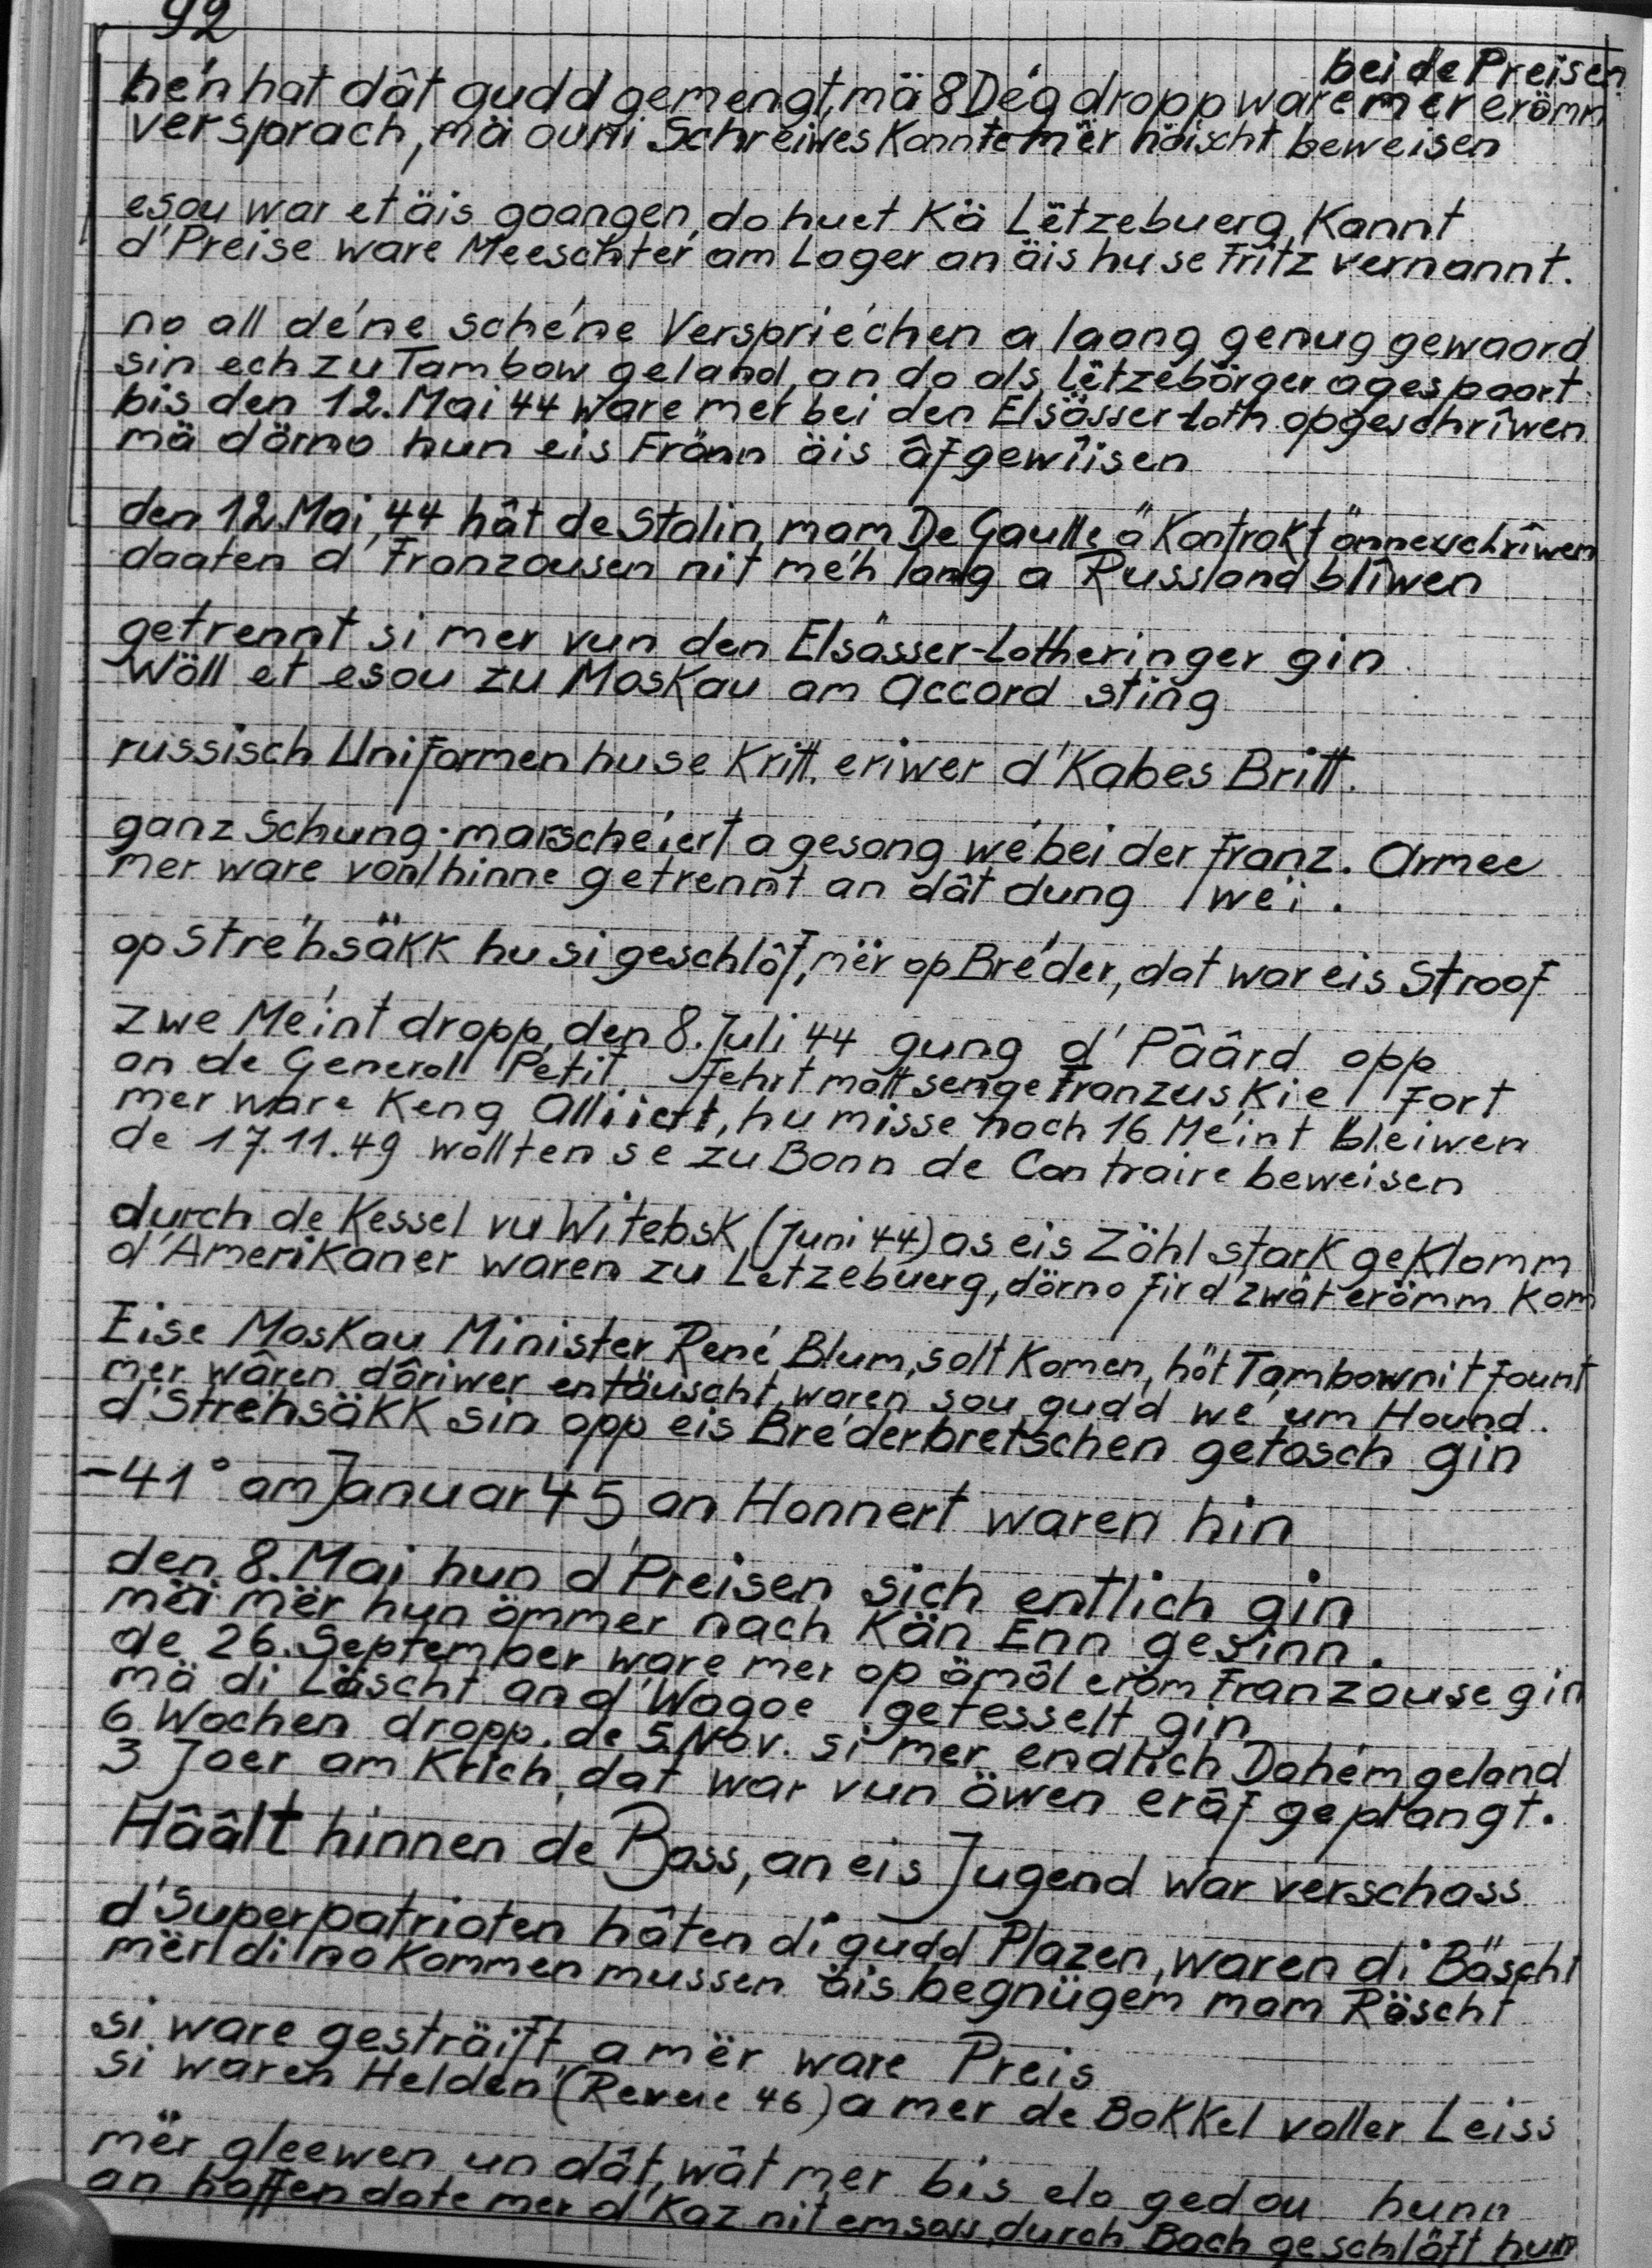 92
bei de Preisen
hén hat dât gudd gemengt, mä 8 Dég dropp ware mer erömm
versprach, mä ouni Schreiwes Konnte mër näischt beweisen
esou war et äis gaangen, do huet Kä Lëtzebuerg Kannt
d'Preise ware Meeschter am Lager an äis hu se Fritz vernannt.
no all déne schéne Verspriéchen a laang genug gewaard
sin ech zu Tambow geland, an do als Lëtzebörger agespaart.
bis den 12. Mai 44 ware mer bei den Elsässer-Loth. opgeschrîwen
mä dörno hun eis Frönn äis âfgewîisen
den 12. Mai 44 hât de Stalin mam De Gaulle ä Kontrakt önnerschrîwen
daaten d'Franzousen nit méh lang a Russland blîwen
getrennt si mer vun den Elsässer-Lotheringer gin
Wöll et esou zu Moskau am Accord sting
russisch Uniformen hu se Kritt, eriwer d'Kabes Britt.
ganz Schung. marschéiert a gesong wé bei der Franz. Armee
mer ware von hinne getrennt an dât dung wéi.
op Stréhsäkk hu si geschlôf, mër op Bréder, dat war eis Stroof
zwe Méint dropp, den 8. Juli 44 gung d'Pâârd opp
an de General Petit. Fehrt matt senge Franzuskie Fort
mer ware Keng Alliiert, hu misse nach 16 Méint bleiwen
de 17.11.49 wollten se zu Bonn de Contraire beweisen
durch de Kessel vu Witebsk, (Juni 44) as eis Zöhl stark geklomm
d'Amerikaner waren zu Letzebuerg, dörno fir d'zwät erömm Kom
Eise Moskau Minister René Blum, solt Komen, hôt Tambow nit fount
mer wâren dôriwer entäuscht, waren sou gudd wé um Hound.
d'Stréhsäkk sin opp eis Bréderbretschen getasch gin
-41° am Januar 45 an Honnert waren hin
den 8. Mai hun d'Preisen sich entlich gin
mër hun ömmer nach Kän Enn gesinn.
de 26. September ware mer op ämôl eröm Franzouse gin
mä di Läscht an d'Wagoe gefesselt gin
6 Wochen dropp, de 5. Nov. si mer endlich Dohém geland
3 Joer am Krich, dat war vun öwen erâf geplangt.
Hâált hinnen de Bass, an eis Jugend war verschass
d'Superpatrioten hâten di gudd Plazen, waren di Bäscht
mër di no Kommen mussen äis begnügem mam Räscht
si ware gesträift a mër ware Preis
si waren Helden (Revue 46) a mer de Bokkel voller Leiss
mër gleewen un dât, wât mer bis elo gedou hunn
an hoffen date mer d'Kaz nit emsoss, durch Bach geschläft hun